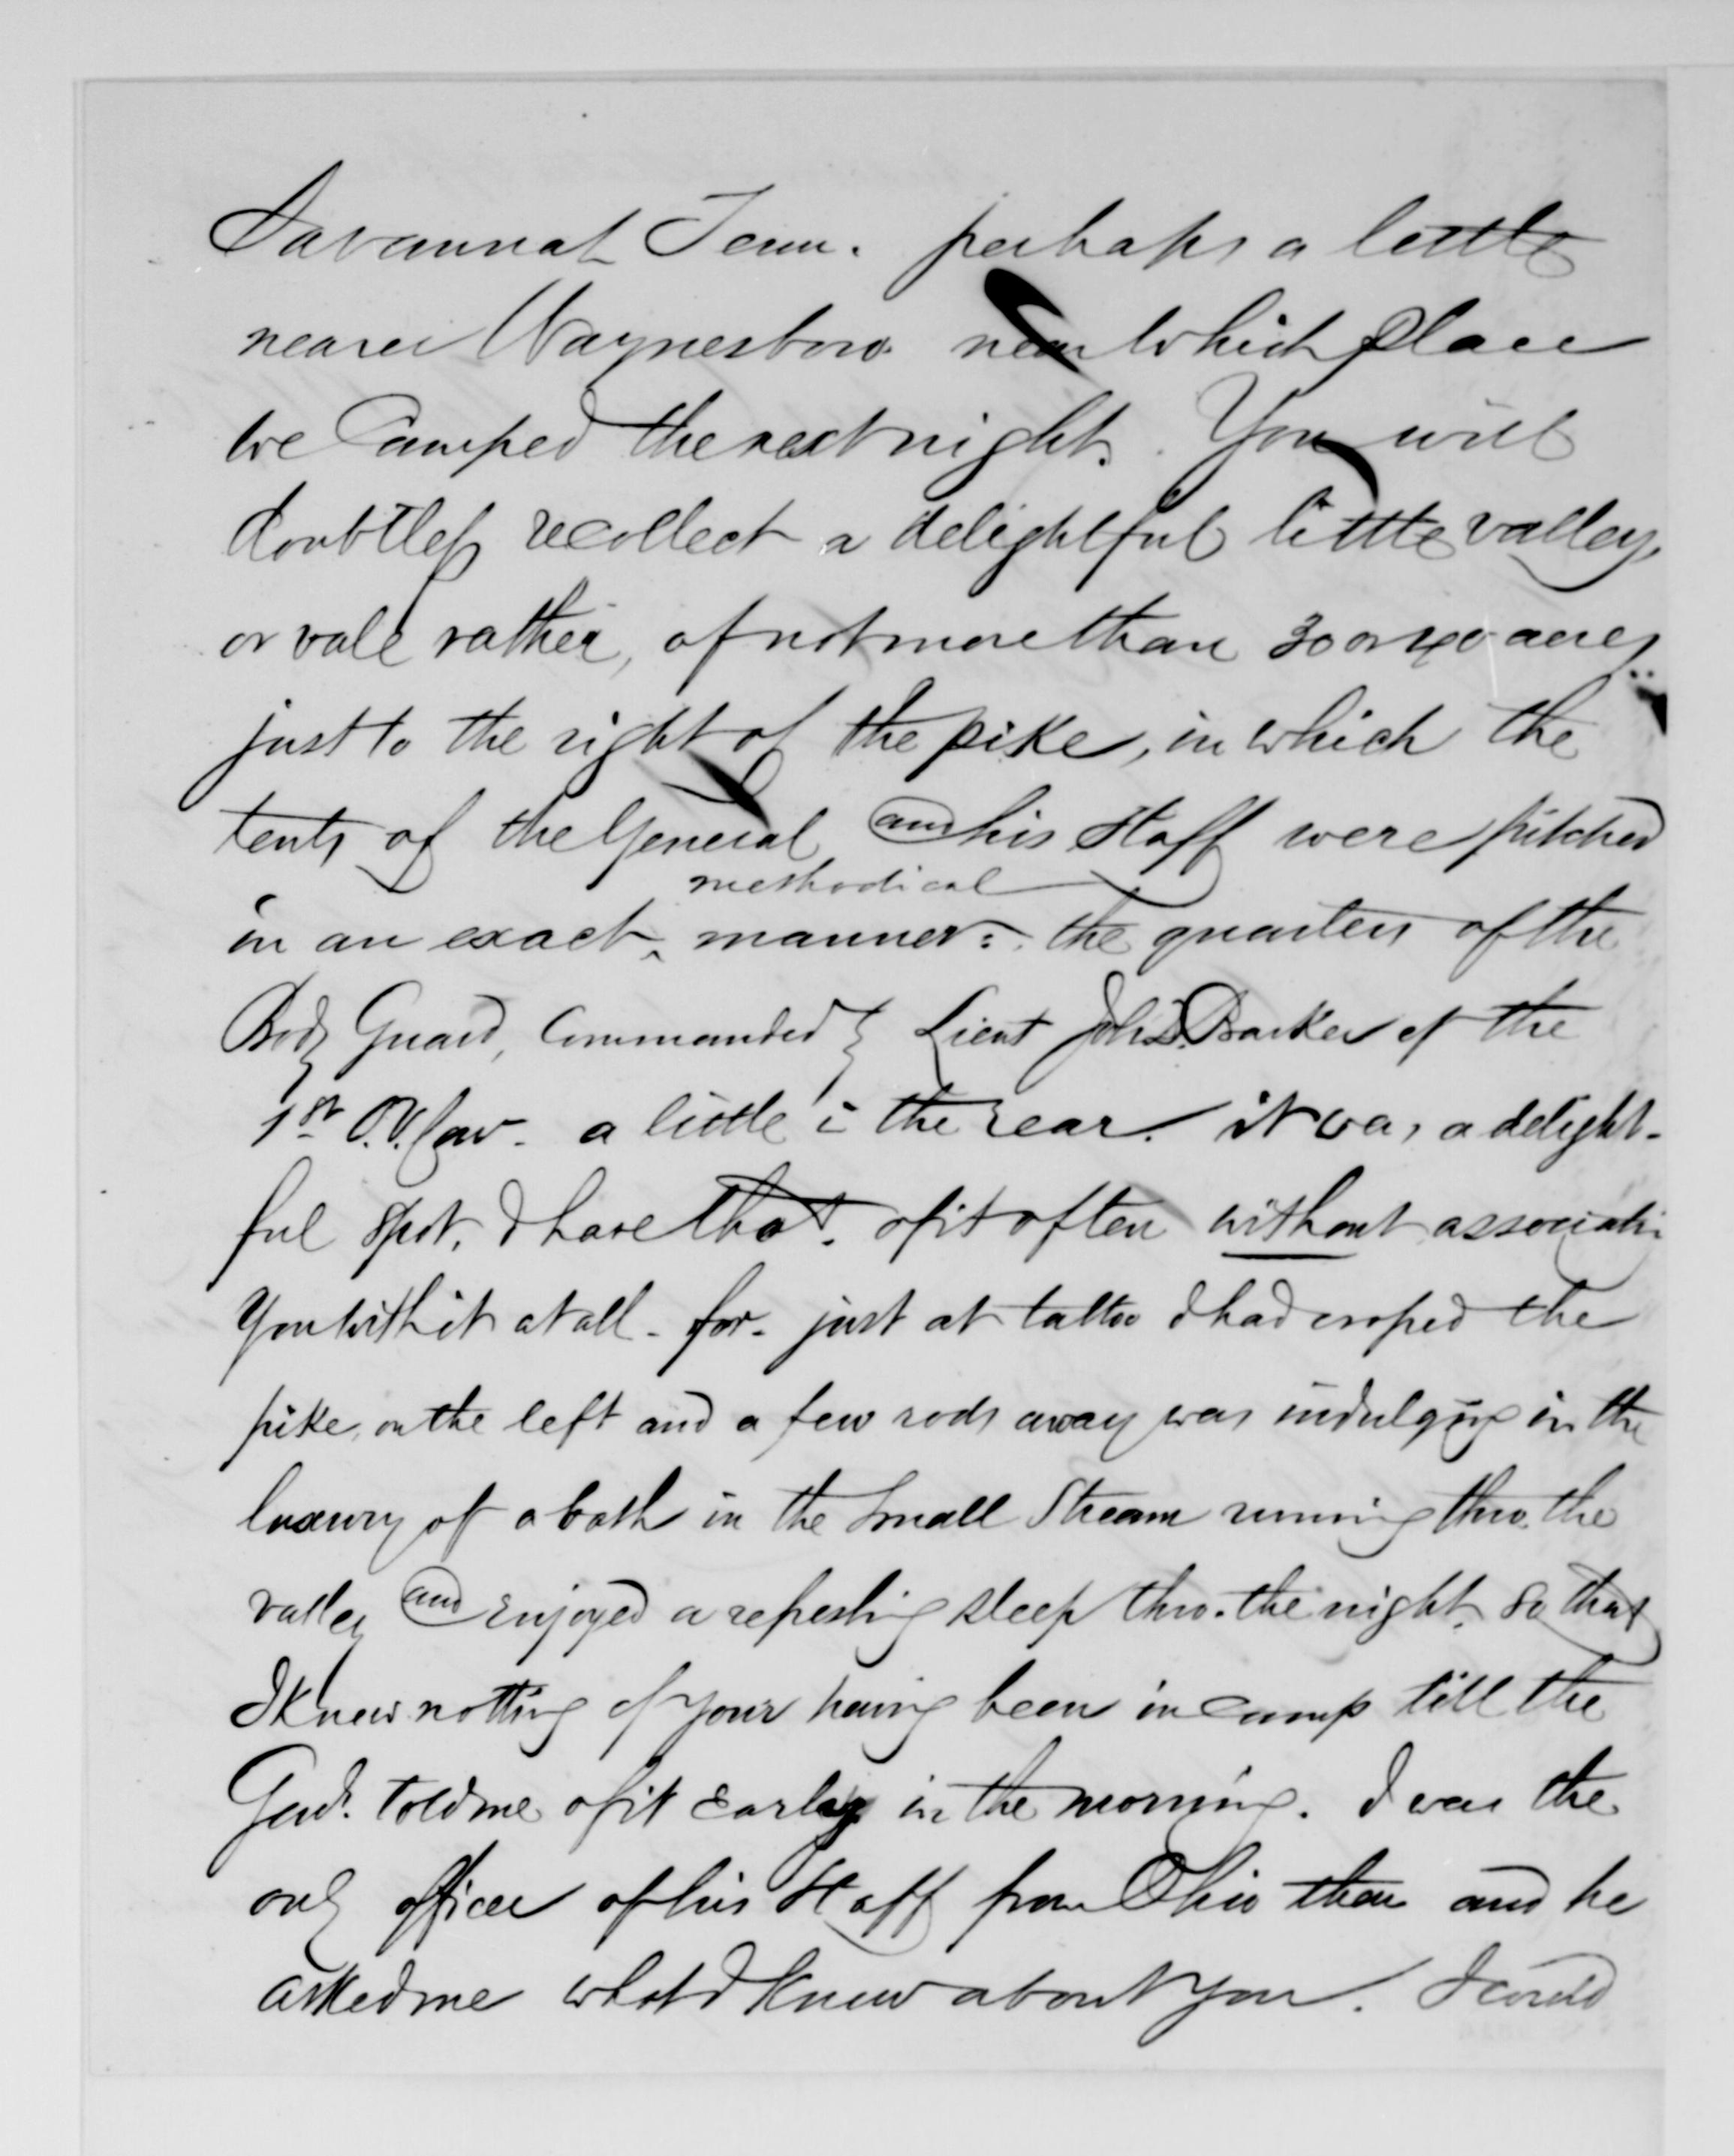 Savannah Tenn. perhaps a little
nearer Waynesboro. near which place
we Camped the next night. You will
doubtless recollect a delightful little valley,
or vale rather, of not more than 30 or 40 acres
just to the right of the pike, in which the
tents of the General and his Staff were pitched
methodical
in an exact ‸ manner: the quarters of the
Body Guard, Commanded by Lieut Jno. D. Barker of the
1st O.V. Cav. a little in the rear. it was a delight-
ful spot. I have tho't. of it often without associating
you with it at all - for - just at tattoo I had crossed the
pike, on the left and a few rods away was indulging in the
luxury of a bath in the small Stream running thro. the
valley and enjoyed a refreshing sleep thro. the night. So that
I knew nothing of your having been in camp till the
Genl. told me of it early in the morning. I was the
only officer of his Staff from Ohio then and he
asked me what I knew about you. I could